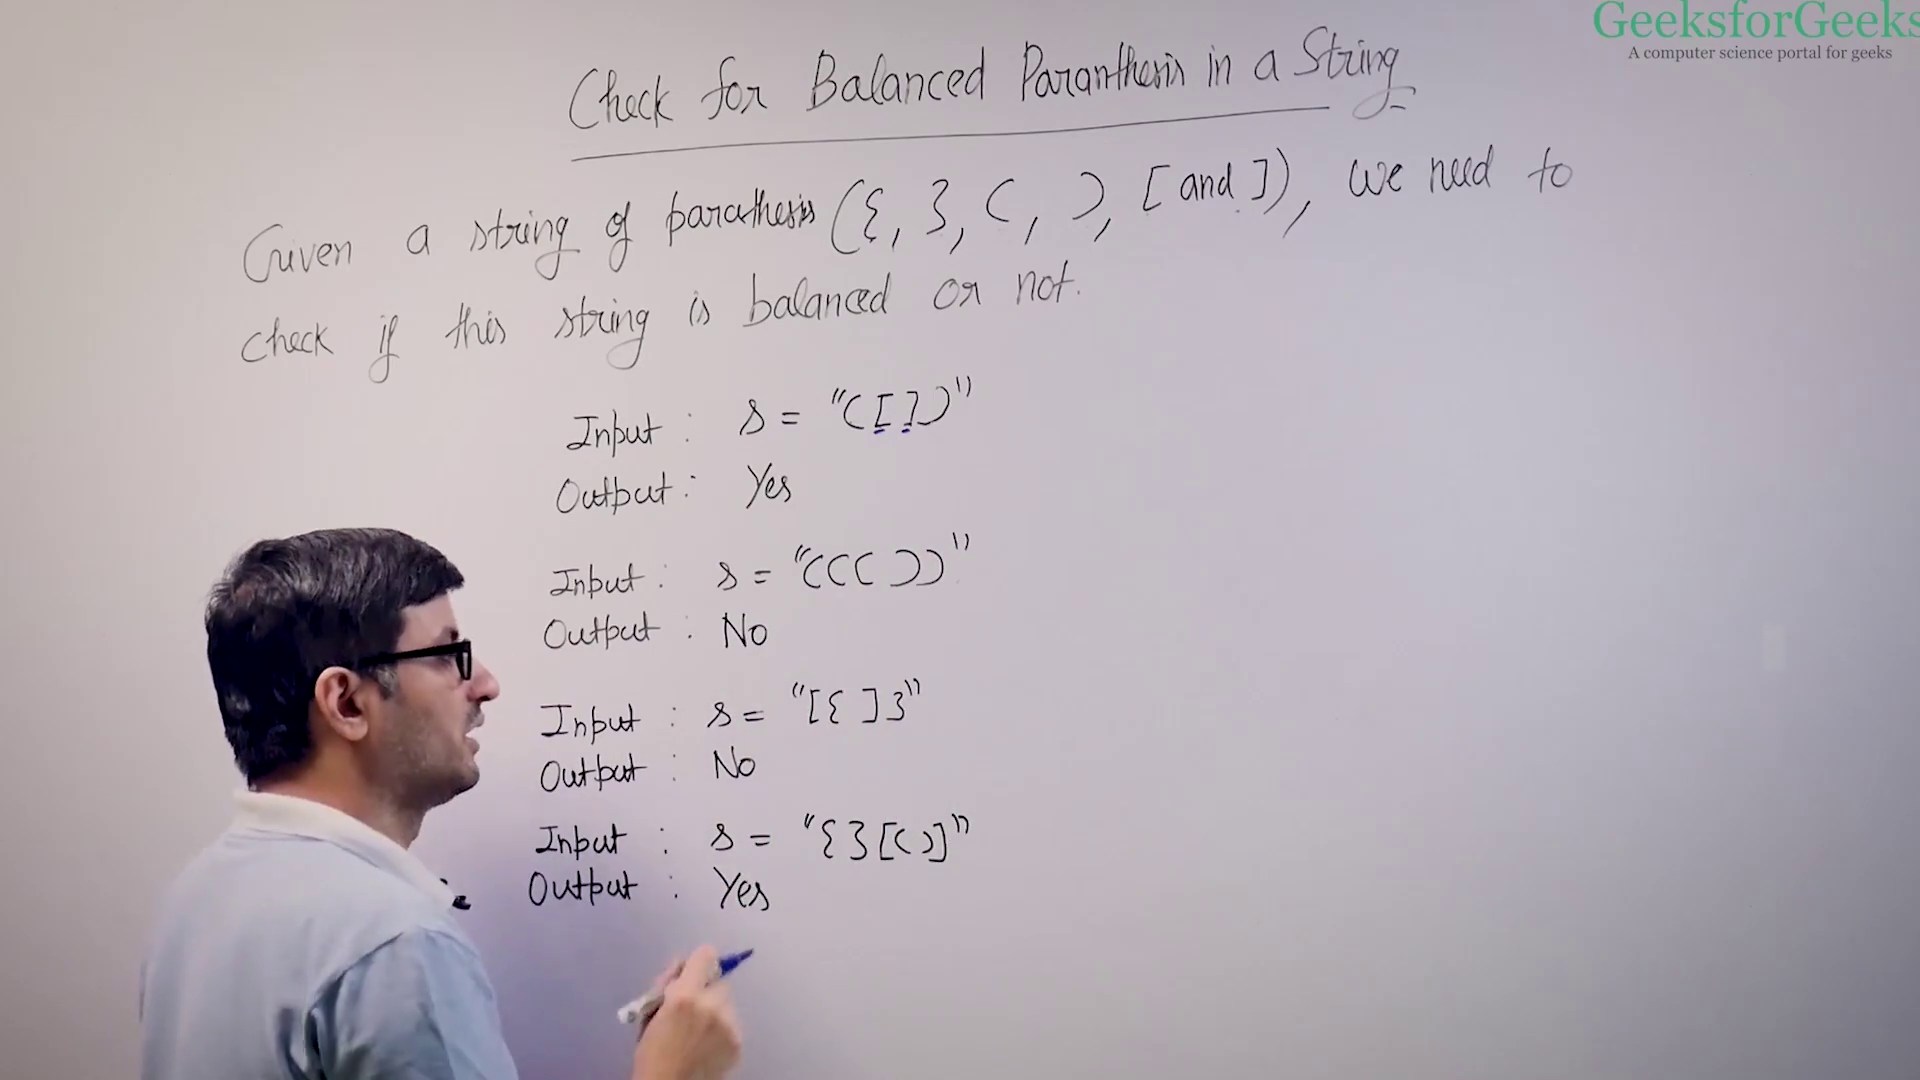 GeeksforGeeks
A computer science portal for geeks
Check for Balanced Paranthesis in a String
Given a string of parathesis ({, }, (, ), [ and ]), we need to
check if this string is balanced or not.
Input : s = "([])"
Output : Yes
Input : s = "((( ))"
Output : No
Input : s = "[{ ]}"
Output : No
Input : s = "{}[()]"
Output : Yes